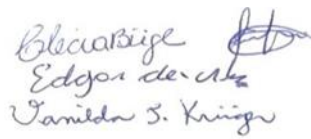 Clécia Büge
Edgar de
Vanilda S. Krüger